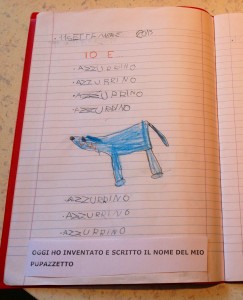 IO E
AZZURRINO
AZZURRINO
AZZURRINO
AZZURRINO
AZZURRINO
AZZURRINO
AZZURRINO
OGGI HO INVENTATO E SCRITTO IL NOME DEL MIO
PUPAZZETTO